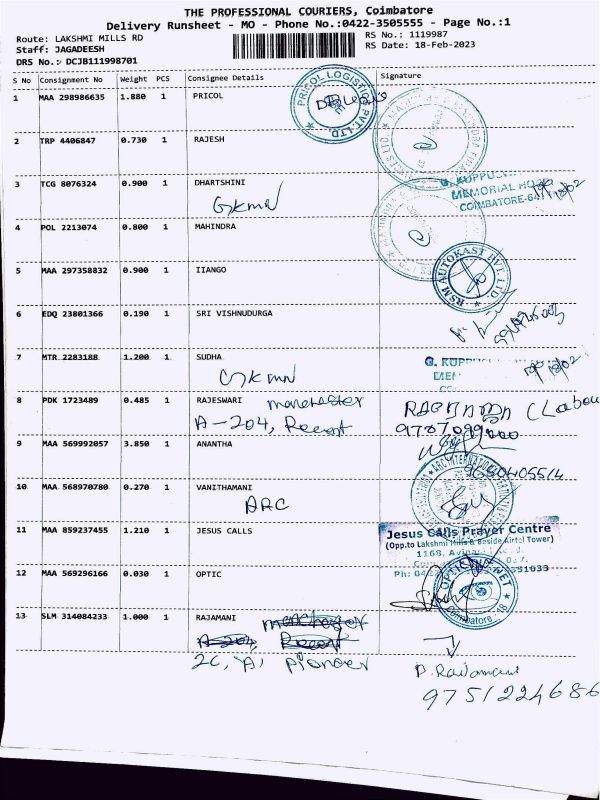 THE PROFESSIONAL COURIERS, Coimbatore
Delivery Runsheet - MO - Phone No.:0422-3505555 - Page No.:1
Route: LAKSHMI MILLS RD
RS No.: 1119987
Staff: JAGADEESH
RS Date: 18-Feb-2023
DRS No.: DCJB111998701
S No Consignment No Weight PCS Consignee Details Signature
1 MAA 298986635 1.880 1 PRICOL
PRICOL LOGISTICS PVT. LTD.
2 TRP 4406847 0.730 1 RAJESH
3 TCG 8076324 0.900 1 DHARTSHINI
GKMH
MEMORIAL
COIMBATORE-641
4 POL 2213074 0.800 1 MAHINDRA
5 MAA 297358832 0.900 1 IIANGO
RSM AUTOKAST PVT. LTD.
6 EDQ 23801366 0.190 1 SRI VISHNUDURGA
7 MTR 2283188 1.200 1 SUDHA
GKMH
8 PDK 1723489 0.485 1 RAJESWARI manchester
A-204, Recent
9787099000
9 MAA 569992057 3.850 1 ANANTHA
10 MAA 568970780 0.270 1 VANITHAMANI
ARC
11 MAA 859237455 1.210 1 JESUS CALLS
Jesus Calls Prayer Centre
(Opp.to Lakshmi Mills & Beside Airtel Tower)
1168,
12 MAA 569296166 0.030 1 OPTIC
Coimbatore 18
13 SLM 314084233 1.000 1 RAJAMANI manchester
A-204, Recent
2C, 'A', pioneer
P. Rajamani
9751224686